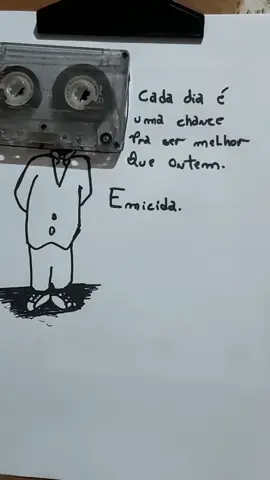 Cada dia é
uma chance
pra ser melhor
que ontem.
Emicida.